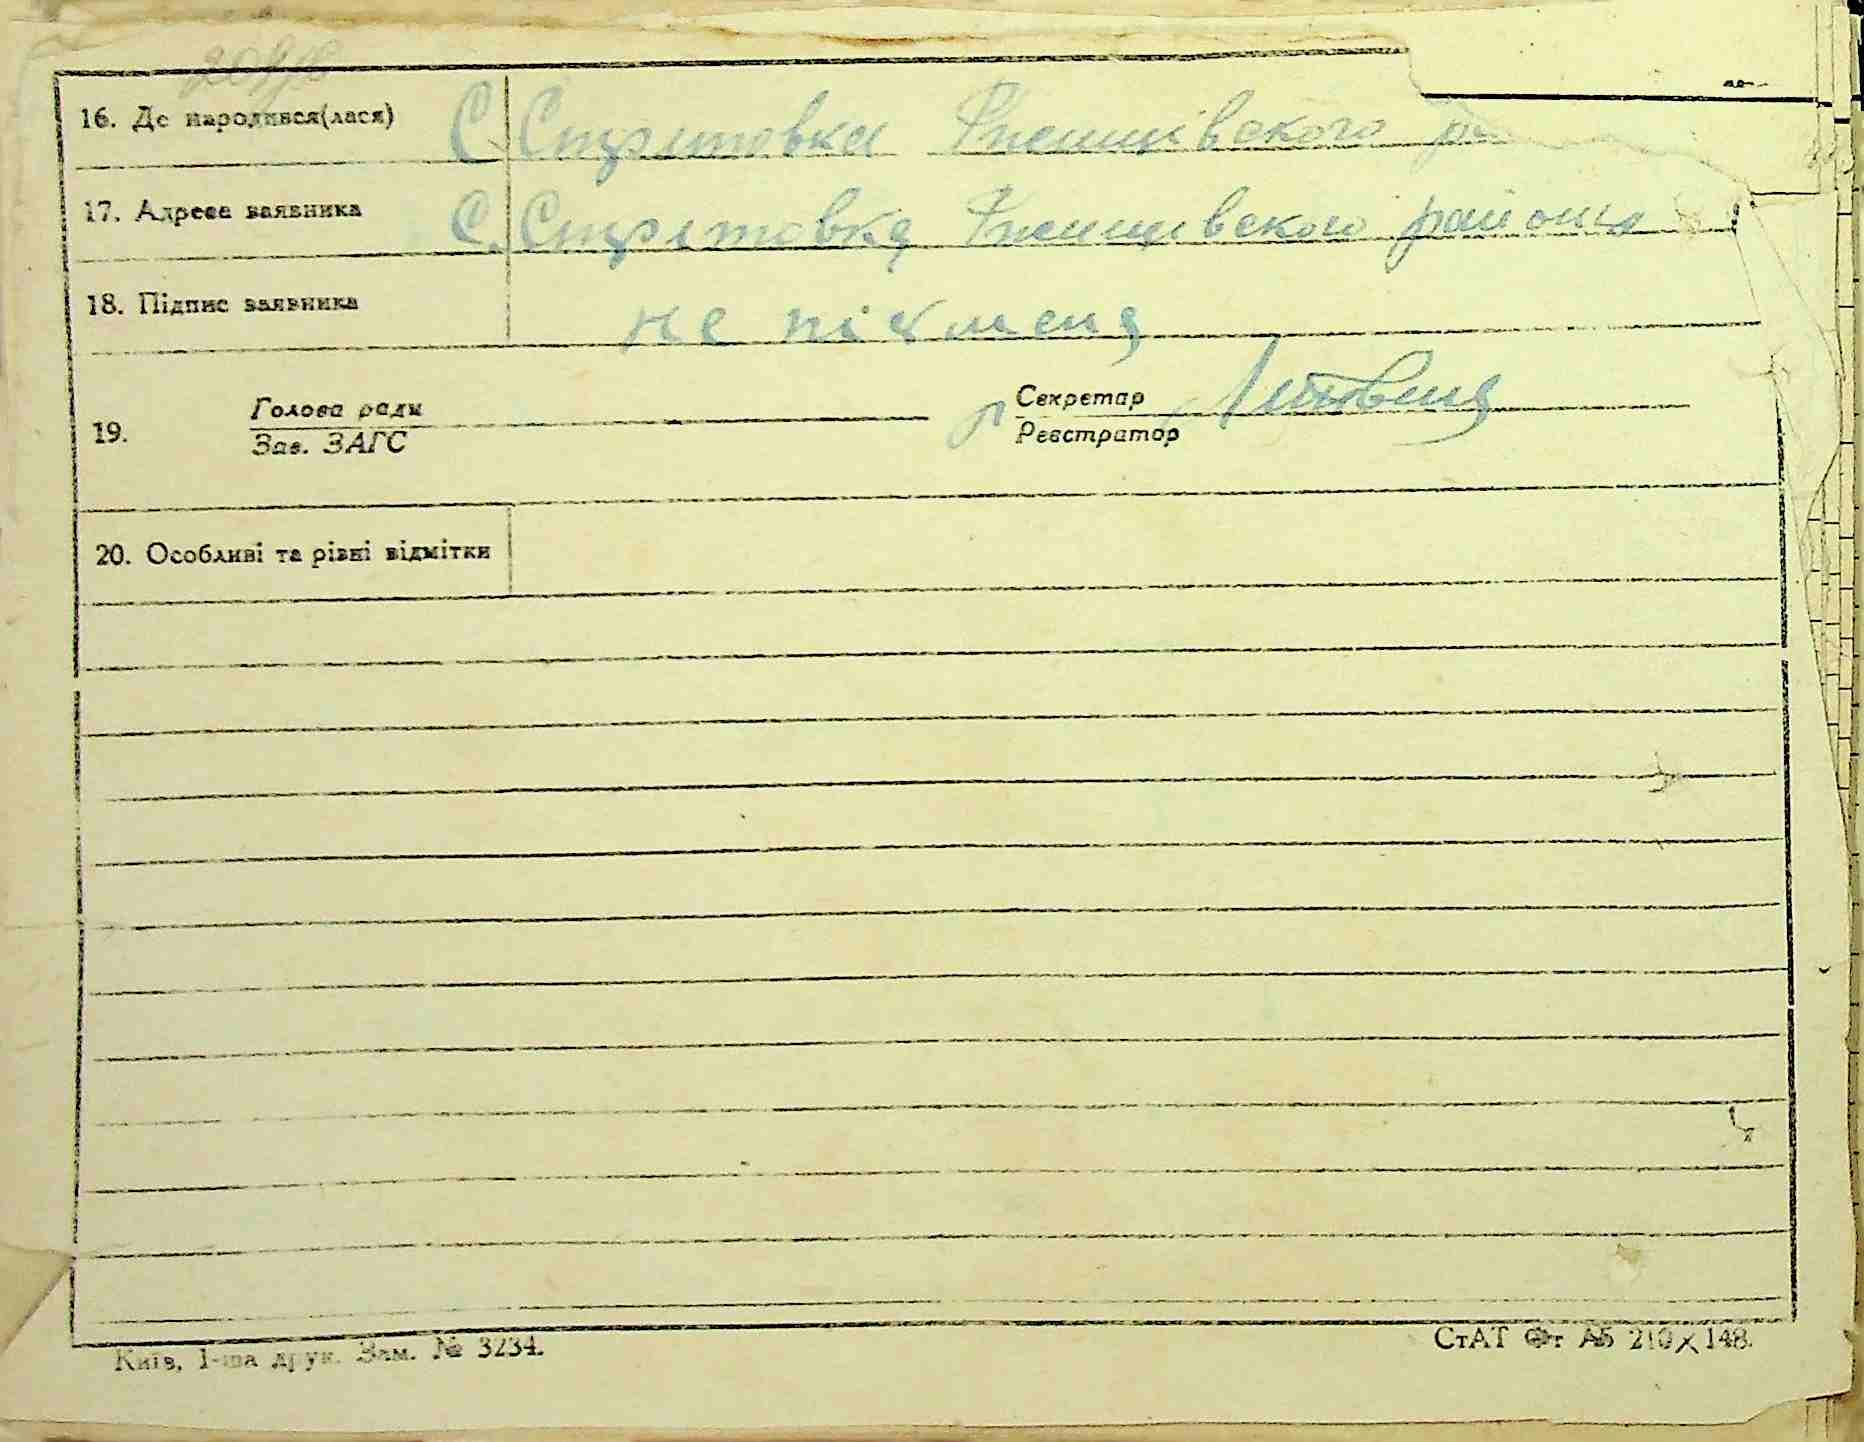 16. Де народився(лася) С. Стритовка Ржищівского
17. Адреса заявника С. Стритовка Ржищівского района
18. Підпис заявника не písмена
Голова ради Секретар Литвин
19.
Зав. ЗАГС Реєстратор
20. Особливі та різні відмітки
Київ, 1-ша друк. Зам. № 3234.
СтАТ Фт А5 210×148.